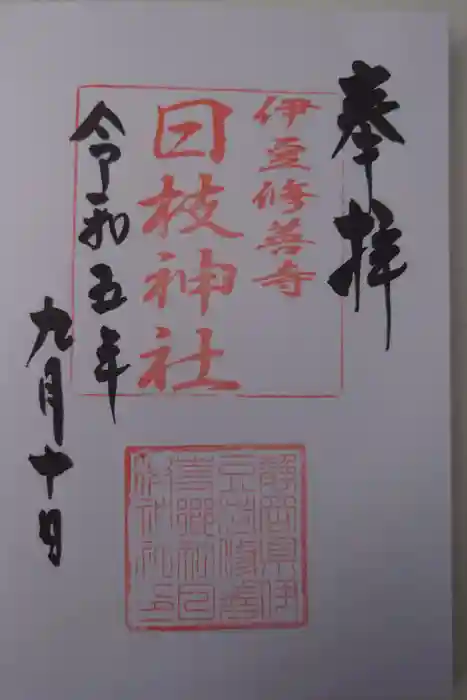 奉拝
伊豆修善寺
日枝神社
令和五年
九月十日
静岡県伊
豆市修善
寺郷社日
枝神社之印